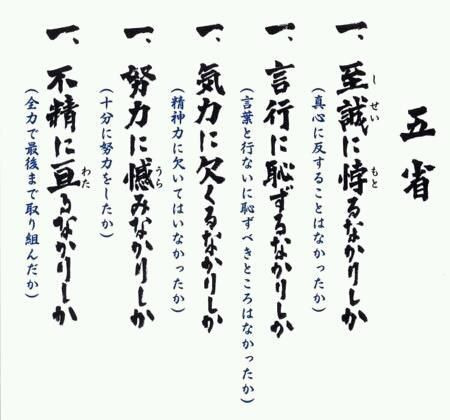 五省
一、至誠に悖るなかりしか
しせい
もと
(真心に反することはなかったか)
一、言行に恥ずるなかりしか
(言葉と行ないに恥ずべきところはなかったか)
一、氣力に欠くるなかりしか
(精神力に欠いてはいなかったか)
一、努力に憾みなかりしか
うら
(十分に努力をしたか)
一、不精に亘るなかりしか
わた
(全力で最後まで取り組んだか)